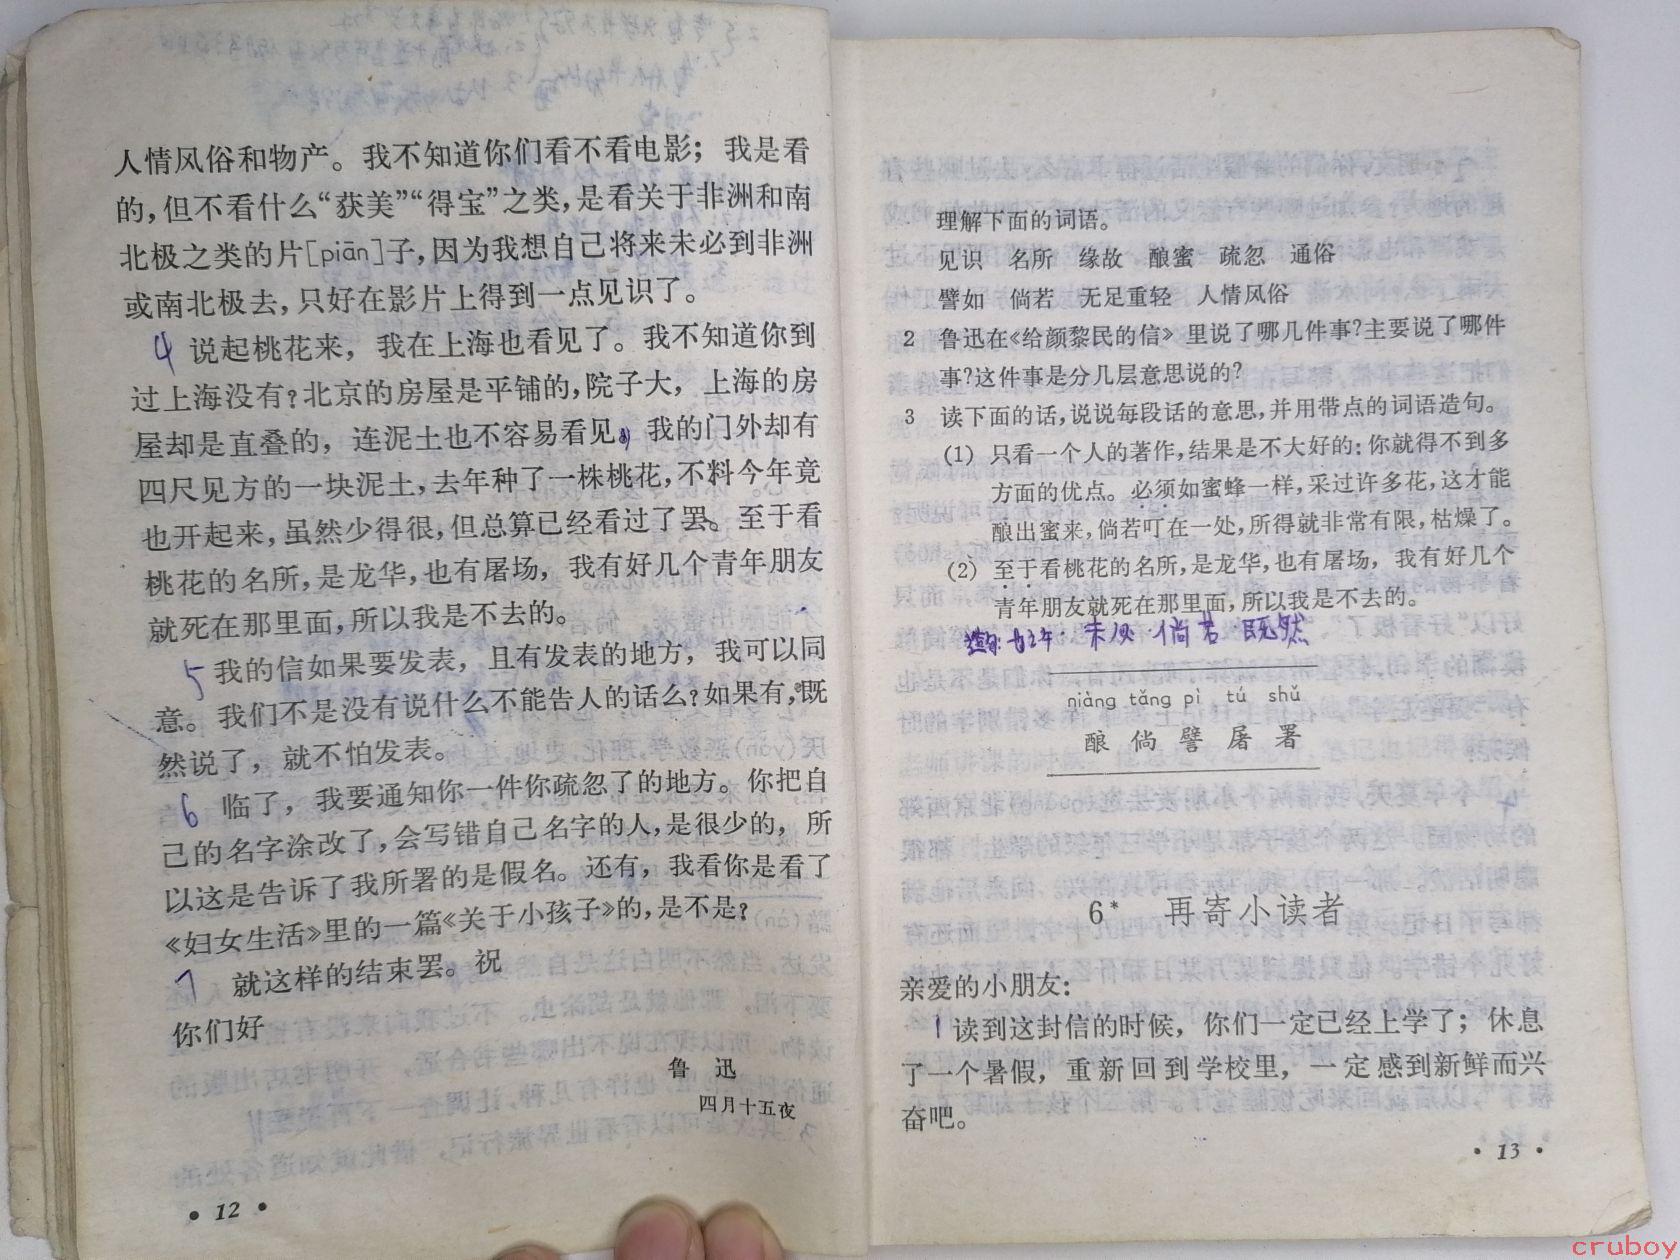 人情风俗和物产。我不知道你们看不看电影；我是看
的，但不看什么“获美”“得宝”之类，是看关于非洲和南
北极之类的片[piān]子，因为我想自己将来未必到非洲
或南北极去，只好在影片上得到一点见识了。
4 说起桃花来，我在上海也看见了。我不知道你到
过上海没有？北京的房屋是平铺的，院子大，上海的房
屋却是直叠的，连泥土也不容易看见。我的门外却有
四尺见方的一块泥土，去年种了一株桃花，不料今年竟
也开起来，虽然少得很，但总算已经看过了罢。至于看
桃花的名所，是龙华，也有屠场，我有好几个青年朋友
就死在那里面，所以我是不去的。
5 我的信如果要发表，且有发表的地方，我可以同
意。我们不是没有说什么不能告人的话么？如果有，既
然说了，就不怕发表。
6 临了，我要通知你一件你疏忽了的地方。你把自
己的名字涂改了，会写错自己名字的人，是很少的，所
以这是告诉了我所署的是假名。还有，我看你是看了
《妇女生活》里的一篇《关于小孩子》的，是不是？
7 就这样的结束罢。祝
你们好
鲁 迅
四月十五夜
• 12 •
理解下面的词语。
见识 名所 缘故 酿蜜 疏忽 通俗
譬如 倘若 无足重轻 人情风俗
2 鲁迅在《给颜黎民的信》里说了哪几件事？主要说了哪件
事？这件事是分几层意思说的？
3 读下面的话，说说每段话的意思，并用带点的词语造句。
(1) 只看一个人的著作，结果是不大好的：你就得不到多
方面的优点。必须如蜜蜂一样，采过许多花，这才能
酿出蜜来，倘若叮在一处，所得就非常有限，枯燥了。
(2) 至于看桃花的名所，是龙华，也有屠场，我有好几个
青年朋友就死在那里面，所以我是不去的。
倘若 既然
niàng tǎng pì tú shǔ
酿 倘 譬 屠 署
6* 再寄小读者
亲爱的小朋友：
1 读到这封信的时候，你们一定已经上学了；休息
了一个暑假，重新回到学校里，一定感到新鲜而兴
奋吧。
• 13 •
cruboy